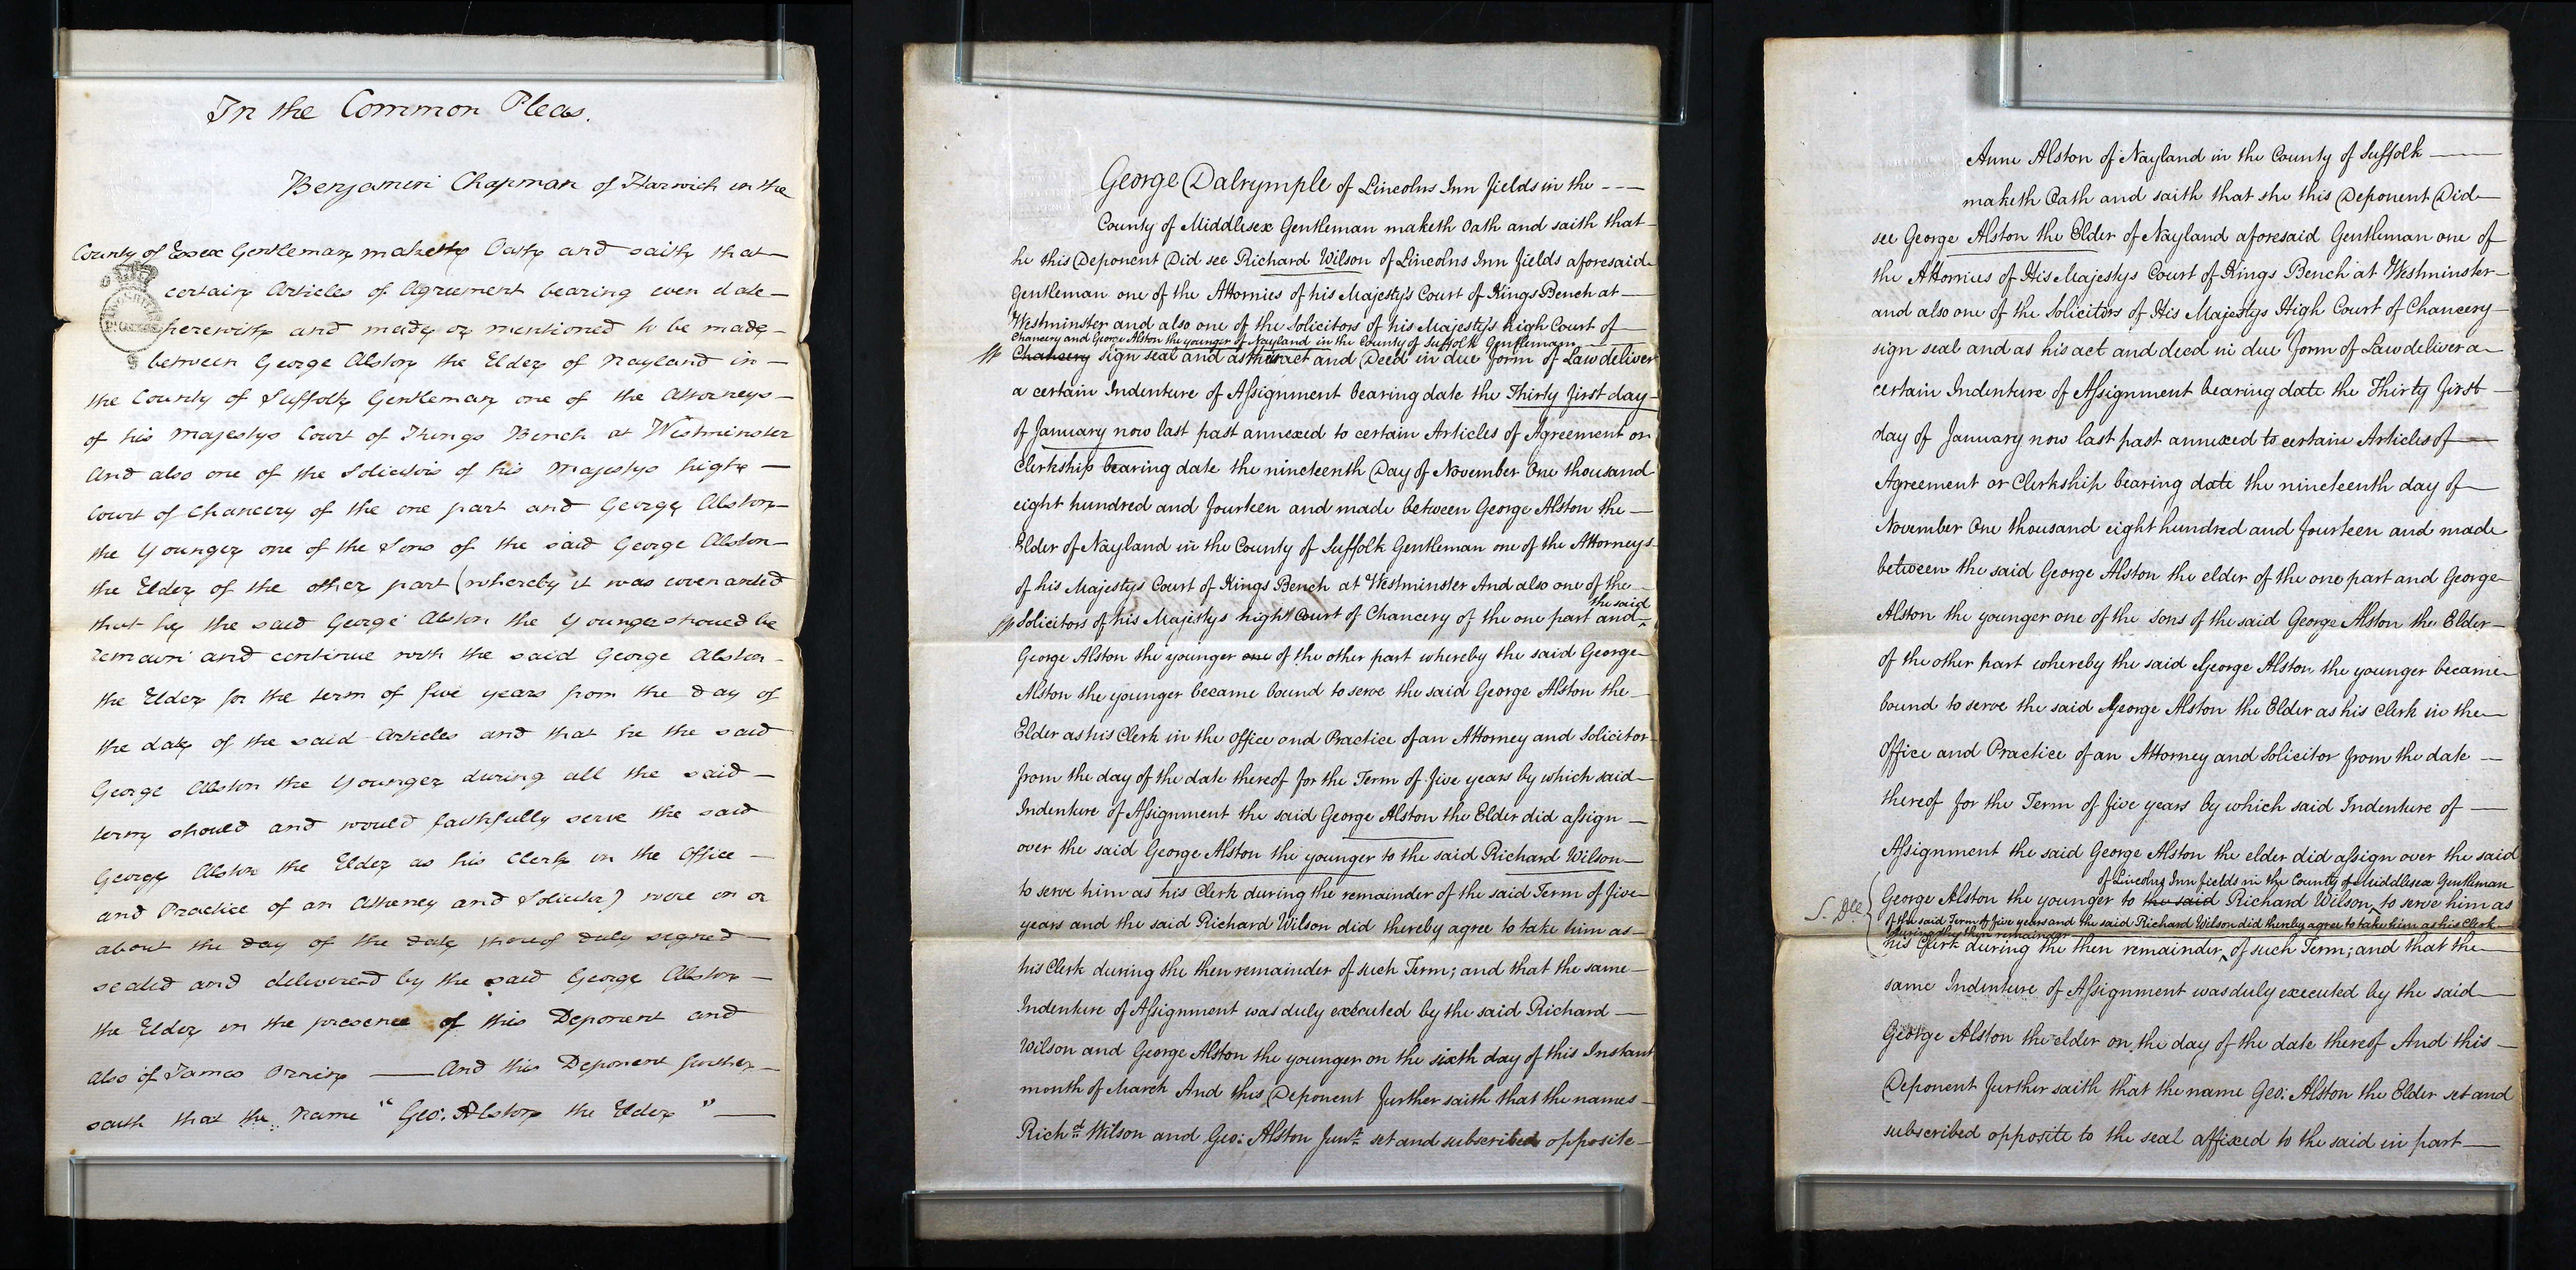 In the Common Pleas.
Benjamin Chapman of Harwich in the
County of Essex Gentleman maketh Oath and saith that
certain Articles of Agreement bearing even date
herewith and made or mentioned to be made
between George Alston the Elder of Nayland in
the County of Suffolk Gentleman one of the Attorneys
of his Majestys Court of Kings Bench at Westminster
And also one of the Solicitors of his Majestys high
Court of Chancery of the one part and George Alston
the Younger one of the Sons of the said George Alston
the Elder of the other part (whereby it was covenanted
that he the said George Alston the Younger should be
remain and continue with the said George Alston
the Elder for the term of five years from the day of
the date of the said Articles and that he the said
George Alston the Younger during all the said
term should and would faithfully serve the said
George Alston the Elder as his Clerk in the Office
and Practice of an Attorney and Solicitor) were on or
about the day of the date thereof duly signed
sealed and delivered by the said George Alston
the Elder in the presence of this Deponent and
also of James And this Deponent further
saith that the Name "Geo: Alston the Elder"
George Dalrymple of Lincolns Inn fields in the
County of Middlesex Gentleman maketh Oath and saith that
he this Deponent Did see Richard Wilson of Lincolns Inn fields aforesaid
Gentleman one of the Attornies of his Majesty's Court of Kings Bench at
Westminster and also one of the Solicitors of his Majesty's high Court of
Chancery and George Alston the younger of Nayland in the County of Suffolk Gentleman
Chancery sign seal and as their act and Deed in due form of Law deliver
a certain Indenture of Assignment bearing date the Thirty first day
of January now last past annexed to certain Articles of Agreement or
Clerkship bearing date the nineteenth Day of November One thousand
eight hundred and fourteen and made between George Alston the
Elder of Nayland in the County of Suffolk Gentleman one of the Attorneys
of his Majestys Court of Kings Bench at Westminster And also one of the
the said
Solicitors of his Majestys high Court of Chancery of the one part and
George Alston the younger one of the other part whereby the said George
Alston the younger became bound to serve the said George Alston the
Elder as his Clerk in the Office and Practice of an Attorney and Solicitor
from the day of the date thereof for the Term of five years by which said
Indenture of Assignment the said George Alston the Elder did assign
over the said George Alston the younger to the said Richard Wilson
to serve him as his Clerk during the remainder of the said Term of five
years and the said Richard Wilson did thereby agree to take him as
his Clerk during the then remainder of such Term; and that the same
Indenture of Assignment was duly executed by the said Richard
Wilson and George Alston the younger on the sixth day of this Instant
month of March And this Deponent further saith that the names
Richd. Wilson and Geo: Alston Junr. set and subscribed opposite
Anne Alston of Nayland in the County of Suffolk
maketh Oath and saith that she this Deponent Did
see George Alston the Elder of Nayland aforesaid Gentleman one of
the Attornies of His Majestys Court of Kings Bench at Westminster
and also one of the Solicitors of His Majestys High Court of Chancery
sign seal and as his act and deed in due form of Law deliver a
certain Indenture of Assignment bearing date the Thirty first
day of January now last past annexed to certain Articles of
Agreement or Clerkship bearing date the nineteenth day of
November One thousand eight hundred and fourteen and made
between the said George Alston the elder of the one part and George
Alston the younger one of the Sons of the said George Alston the Elder
of the other part whereby the said George Alston the younger became
bound to serve the said George Alston the Elder as his Clerk in the
Office and Practice of an Attorney and Solicitor from the date
thereof for the Term of five years by which said Indenture of
Assignment the said George Alston the elder did assign over the said
of Lincolns Inn fields in the County of Middlesex Gentleman
George Alston the younger to the said Richard Wilson to serve him as
of the said Term of five years and the said Richard Wilson did thereby agree to take him as his Clerk
during the then remainder
his Clerk during the then remainder of such Term; and that the
same Indenture of Assignment was duly executed by the said
George Alston the elder on the day of the date thereof And this
Deponent further saith that the name Geo: Alston the Elder set and
subscribed opposite to the seal affixed to the said in part